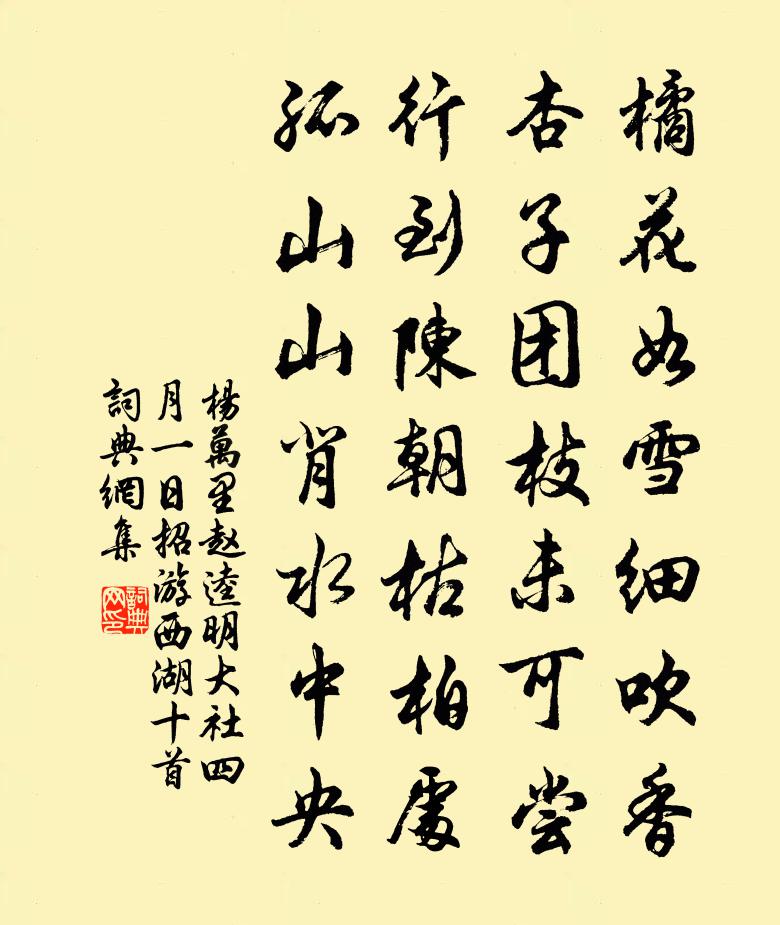 橘花如雪細吹香
杏子团枝未可尝
行到陳朝枯柏處
孤山山背水中央
楊萬里赵逵明大社四
月一日招游西湖十首
詞典網集
詞典网印